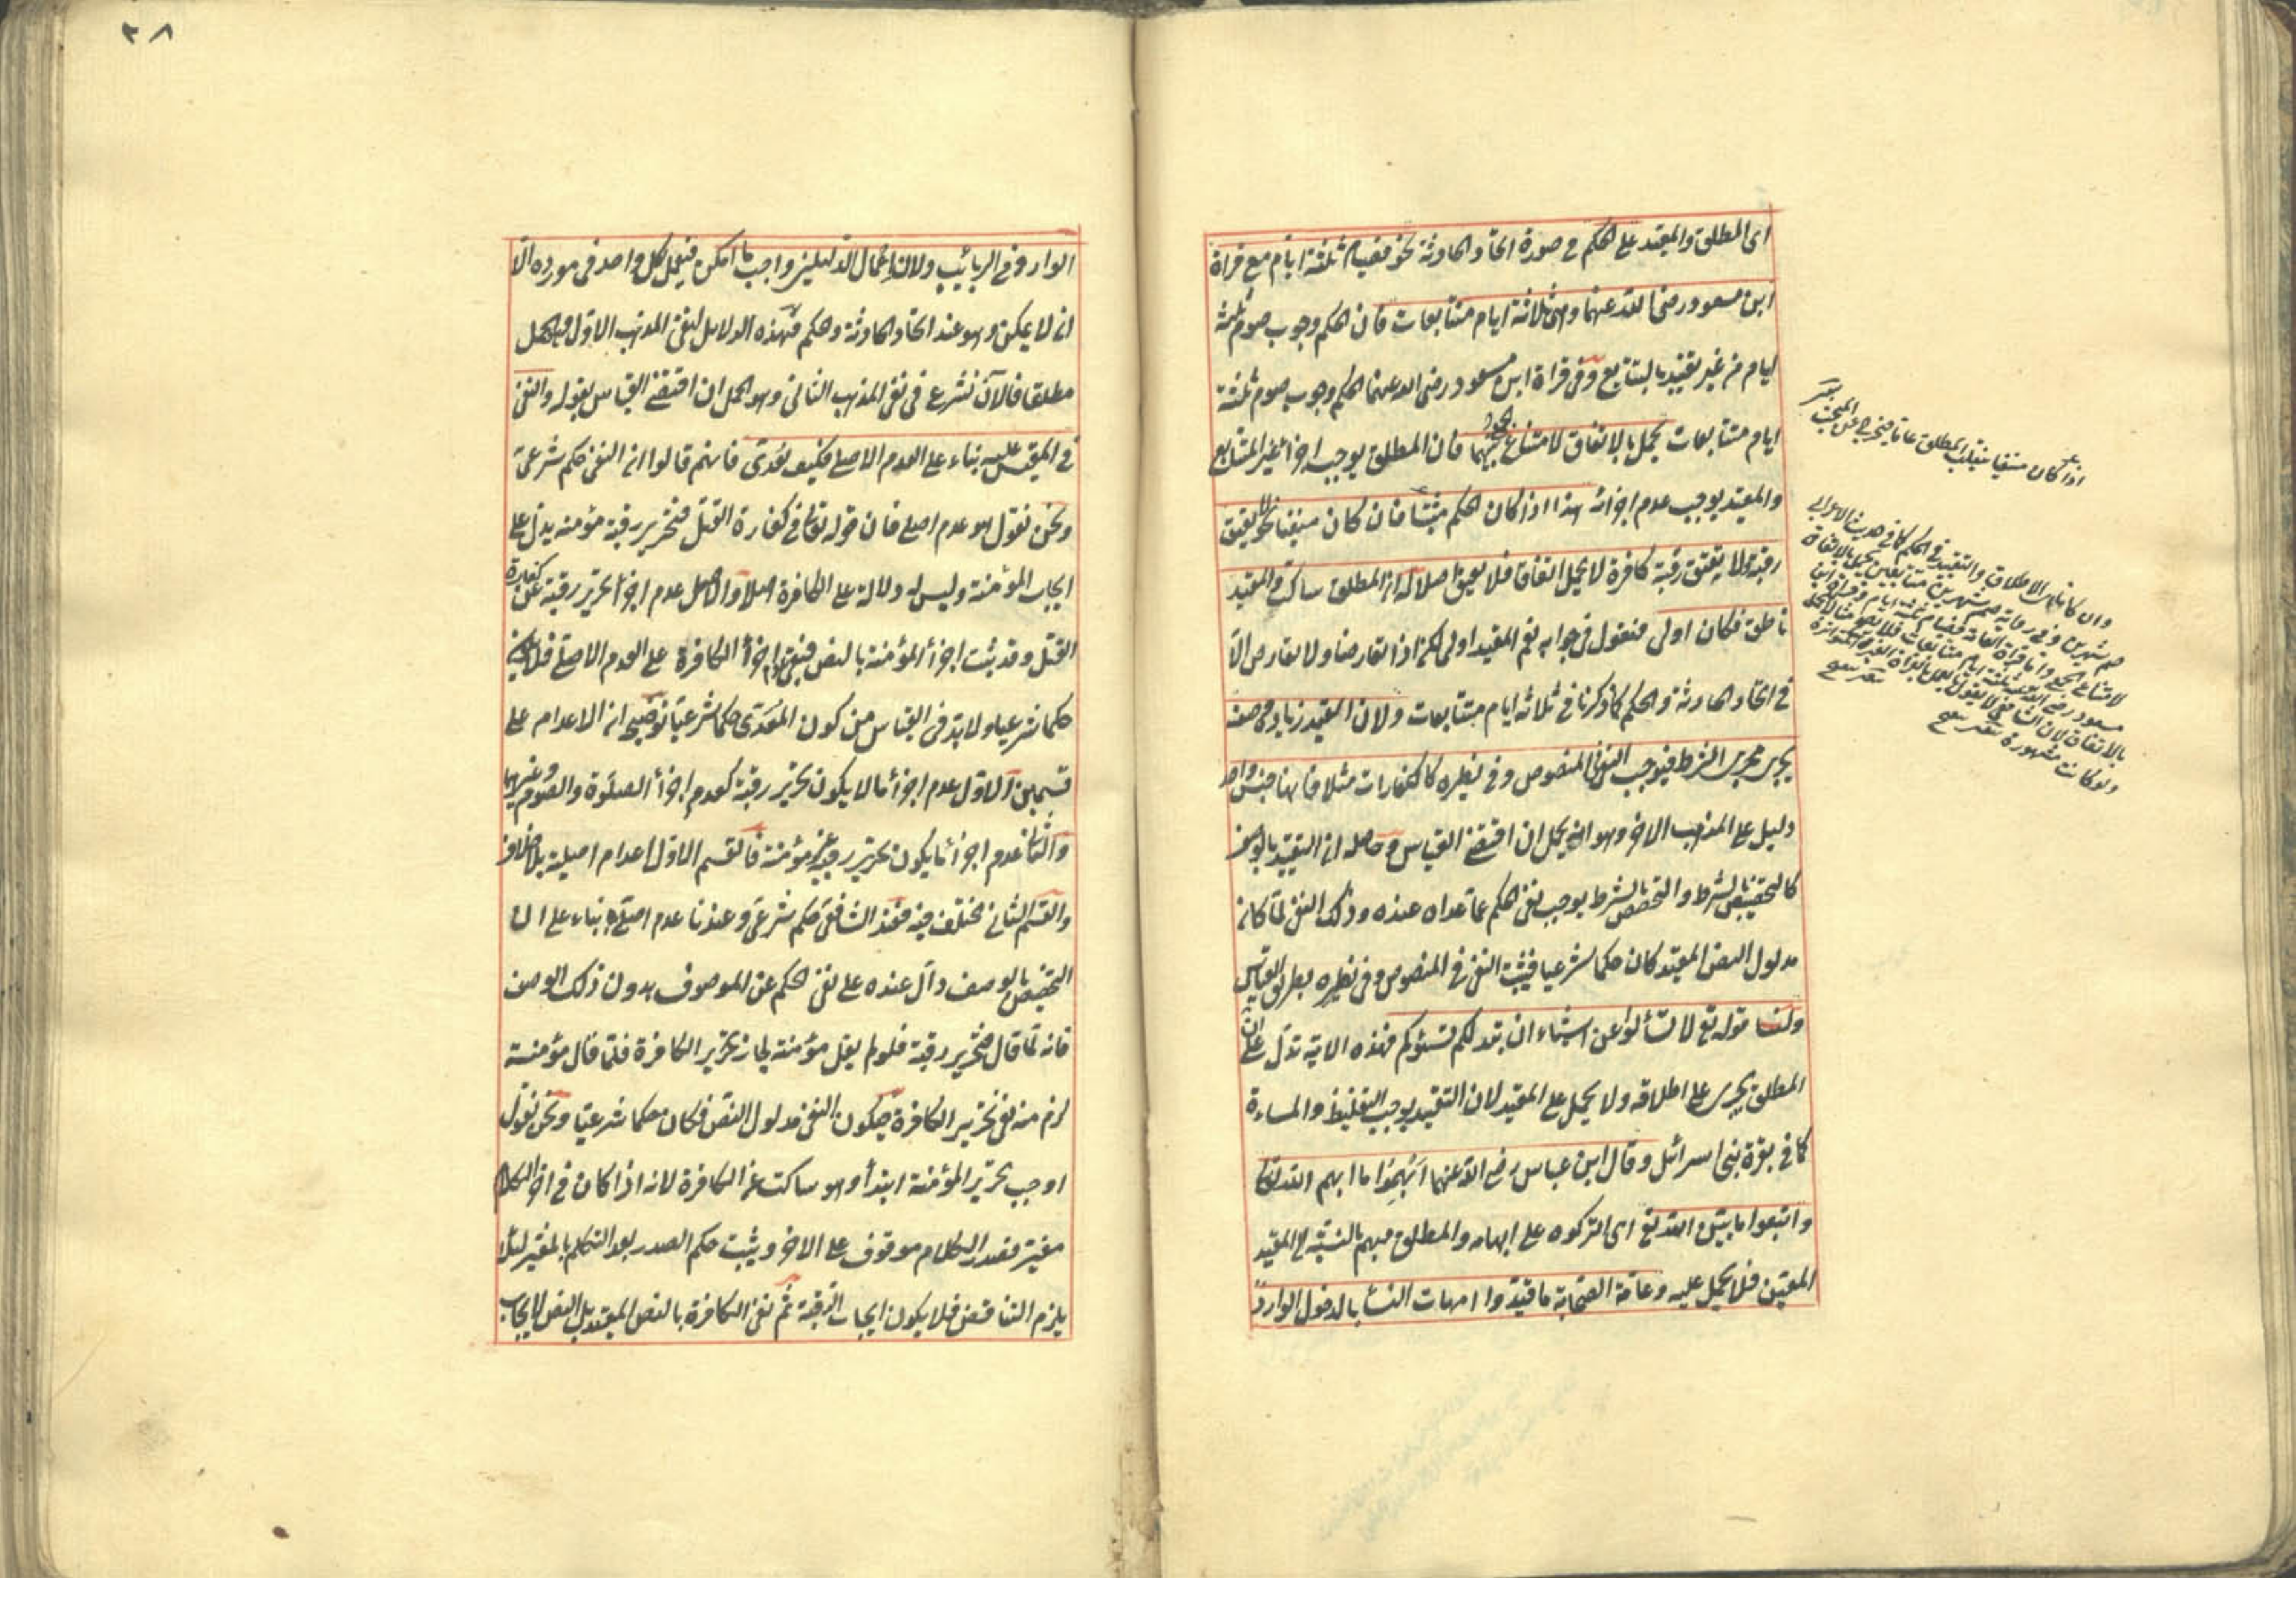 اى المطلق والمقيد على الحكم فى صورة اتحاد الحادثة نحو فصيام ثلثة ايام مع قراة
ابن مسعود رضى الله عنهما وهى ثلاثة ايام متتابعات فان الحكم وجوب صوم ثلثة
ايام من غير تقييد بالتتابع وفى قراة ابن مسعود رضى الله عنهما الحكم وجوب صوم ثلثة
ايام متتابعات يحمل بالاتفاق لامتناع الجمع بينهما فان المطلق يوجب اجزا غير المتتابع
والمقيد يوجب عدم اجزائه هذا اذا كان الحكم مثبتا فان كان منفيا نحو لا يعتق
رقبة ولا يعتق رقبة كافرة لا يحمل اتفاقا فلا يعتق اصلا له ان المطلق ساكت والمقيد
ناطق فكان اولى فنقول فى جوابه نعم المقيد اولى لكن اذا تعارضا ولا تعارض الا
فى اتحاد الحادثة والحكم كما ذكرنا فى ثلاثة ايام متتابعات ولان المقيد زيادة وصف
يجرى مجرى الشرط فيوجب النفى فى المنصوص وفى نظيره كالكفارات مثلا فانها جنس واحد
دليل على المذهب الاخر وهو انه يحمل ان اقتضى القياس وحاصله ان التقييد بالوصف
كالتخصيص بالشرط والتخصيص بالشرط يوجب نفى الحكم عما عداه عنده وذلك النفى لما كان
مدلول النص المقيد كان حكما شرعيا فيثبت النفى فى المنصوص وفى نظيره بطريق القياس
ولنا قوله تع لا تسألوا عن اشياء ان تبد لكم تسؤكم فهذه الاية تدل على ان
المطلق يجرى على اطلاقه ولا يحمل على المقيد لان التقييد يوجب التغليظ والمساءة
كما فى بقرة بنى اسرائل وقال ابن عباس رضى الله عنهما ابهموا ما ابهم الله تعالى
واتبعوا ما بين الله تع اى اتركوه على ابهامه والمطلق مبهم بالنسبة الى المقيد
المعين فلا يحمل عليه وعامة الصحابة ما قيدوا امهات النسا بالدخول الوارد
اذا كان منفيا المطلق عاما فيخرج عن المبحث
وان كانا الاطلاق والتقييد فى الحكم كما فى حديث الاعرابى
صم شهرين وفى رواية صم شهرين متتابعين يحمل بالاتفاق
لامتناع الجمع واما قراة العامة فصيام ثلثة ايام وقراة ابن
مسعود رضى الله عنه ثلثة ايام متتابعات
بالاتفاق لان الشافعى لا يقول بالعمل بالقراة الغير المتواترة
ولو كانت مشهورة
٣٨
الوارد فى الربائب ولان اعمال الدليلين واجب ما امكن فيعمل بكل واحد فى مورده الا
ان لا يمكن وهو عند اتحاد الحادثة والحكم فهذه الدلايل لنفى المذهب الاول وهو الحمل
مطلقا فالآن نشرع فى نفى المذهب الثانى وهو الحمل ان اقتضى القياس بقوله والنفى
فى المقيس عليه بناء على العدم الاصلى فكيف يعدى فانهم قالوا ان النفى حكم شرعى
ونحن نقول هو عدم اصلى فان قوله تعالى فى كفارة القتل فتحرير رقبة مؤمنة يدل على
ايجاب المؤمنة وليس له دلالة على الكافرة اصلا والاصل عدم اجزأ تحرير رقبة عن كفارة
القتل وقد ثبت اجزأ المؤمنة بالنص فبقى عدم اجزأ الكافرة على العدم الاصلى فلا يكون
حكما شرعيا ولا بد فى القياس من كون المعدى حكما شرعيا توضيحه ان الاعدام على
قسمين الاول عدم اجزأ ما لا يكون تحرير رقبة كعدم اجزأ الصلوة والصوم وغيرهما
والثانى عدم اجزأ ما يكون تحرير رقبة غير مؤمنة فالقسم الاول اعدام اصلية بلا خلاف
والقسم الثانى مختلف فيه فعند الشافعى حكم شرعى وعندنا عدم اصلى بناء على ان
التخصيص بالوصف دال عنده على نفى الحكم عن الموصوف بدون ذلك الوصف
فانه لما قال فتحرير رقبة فلو لم يقل مؤمنة لجاز تحرير الكافرة فلما قال مؤمنة
لزم منه نفى تحرير الكافرة فيكون النفى مدلول النص فكان حكما شرعيا ونحن نقول
اوجب تحرير المؤمنة ابتدأ وهو ساكت عن الكافرة لانه اذا كان فى اخر الكلام
مغير فصدر الكلام موقوف على الاخر ويثبت حكم الصدر بعد التكلم بالمغير لئلا
يلزم التناقض فلا يكون ايجاب الرقبة ثم نفى الكافرة بالنص المقيد بل النص لايجاب